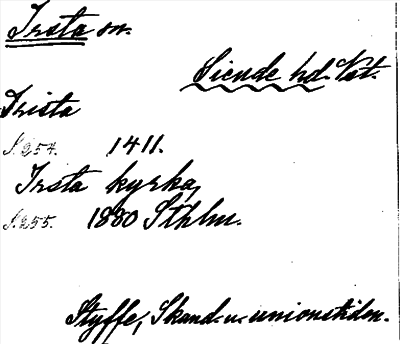 Irsta sn.
Siende hd. Vst.
Irista
S. 254. 1411.
Irsta kyrka,
S. 255. 1880 Sthlm.
Styffe, Skand. u. unionstiden.